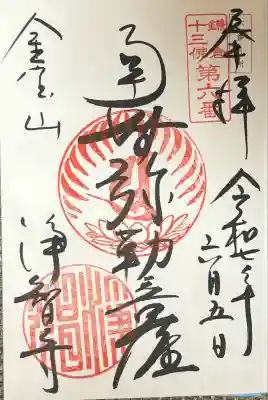 奉拝
令和七年
六月五日
鎌倉
十三佛
第六番
弥勒菩薩
金宝山
浄智寺